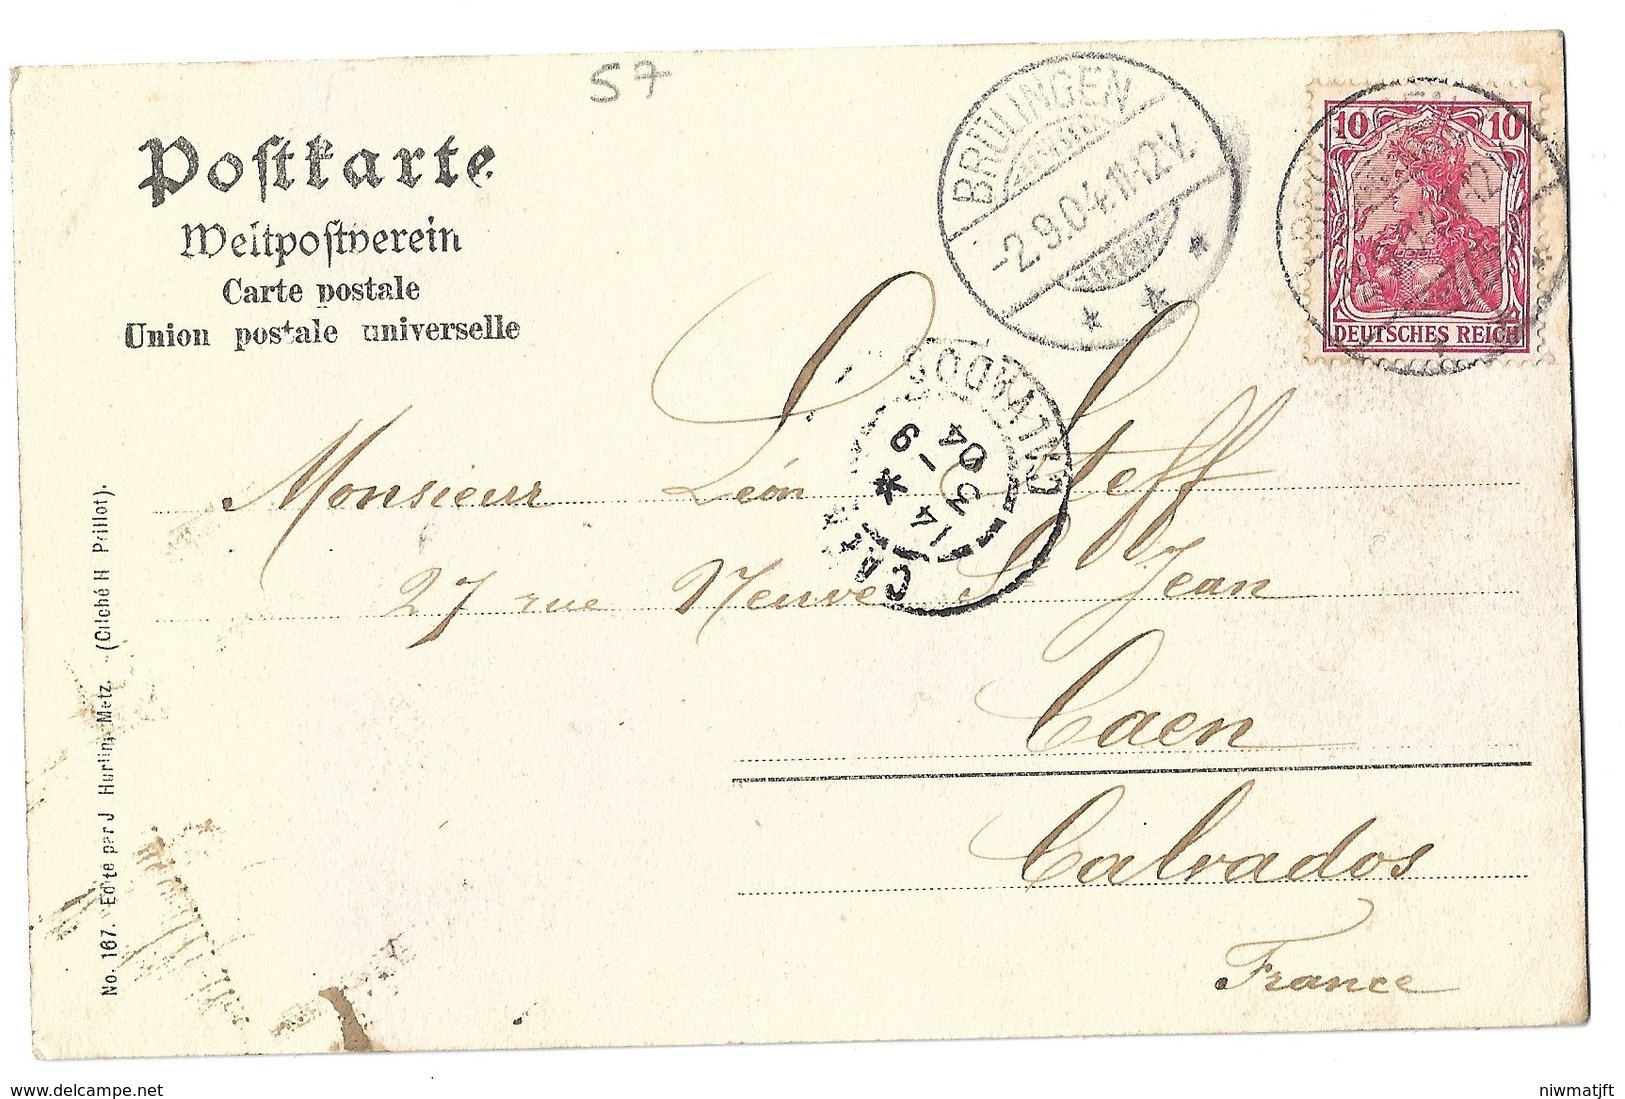 57
Postkarte
Weltpostverein
Carte postale
Union postale universelle
BRÜLINGEN
-2.9.04.11-12V.
10 10
DEUTSCHES REICH
CALVADOS
14
3 - 9
04
CAEN
Monsieur Léon Steff
27 rue Neuve St Jean
Caen
Calvados
France
No. 167. Edité par J Hurlin, Metz. (Cliché H Prillot).
www.delcampe.net
niwmatjft